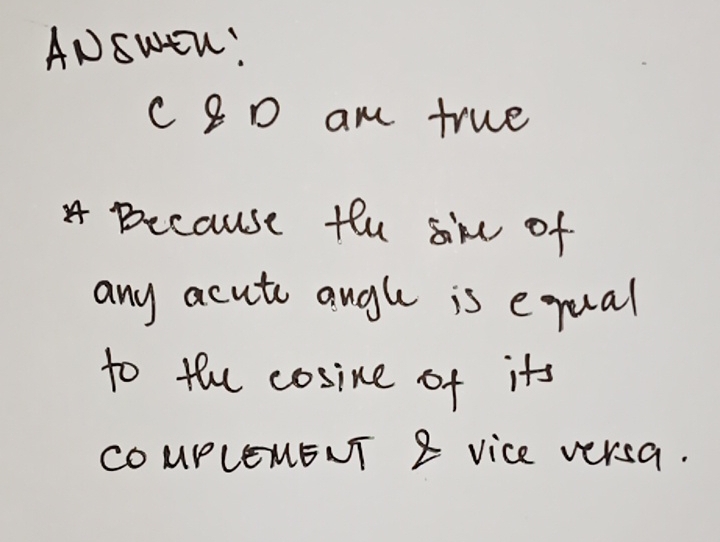 ANSWER:
C & D are true
* Because the sine of
any acute angle is equal
to the cosine of its
COMPLEMENT & vice versa.